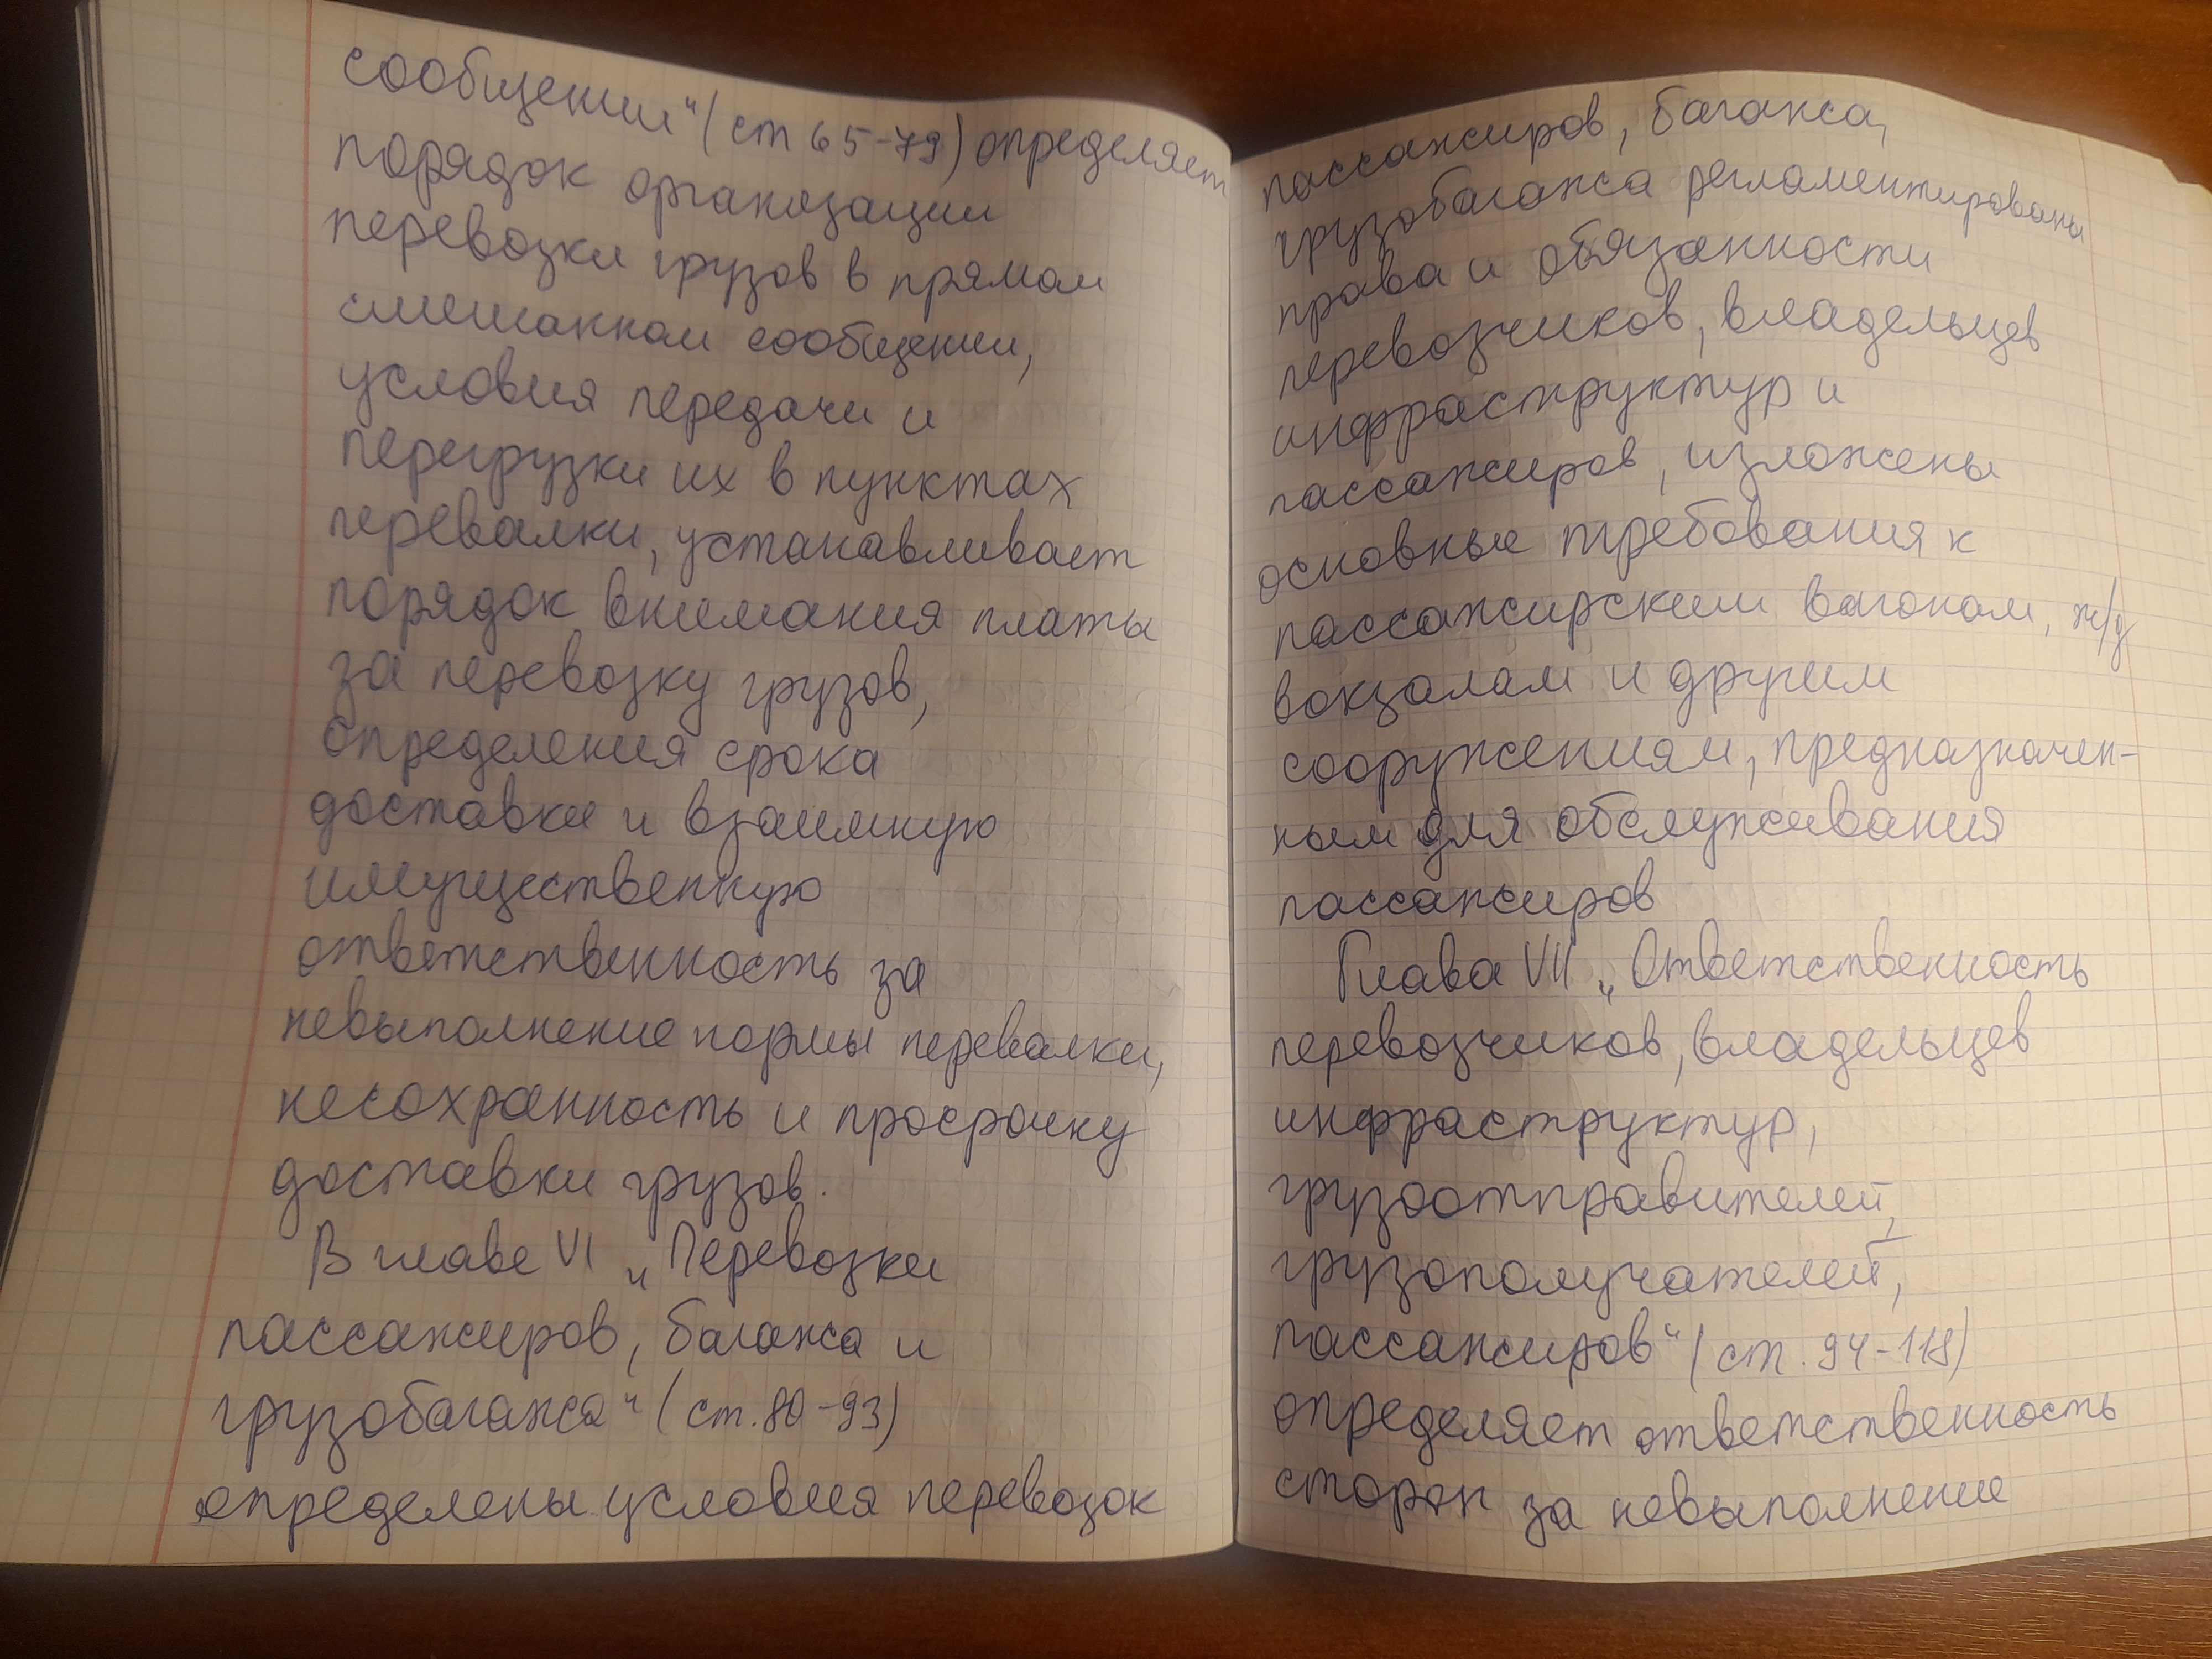 сообщении" (ст 65-79) определяет
порядок организации
перевозки грузов в прямом
смешанном сообщении,
условия передачи и
перегрузки их в пунктах
перевалки, устанавливает
порядок внимания платы
за перевозку грузов,
определения срока
доставки и взаимную
имущественную
ответственность за
невыполнение нормы перевалки,
несохранность и просрочку
доставки грузов.
В главе VI „Перевозки
пассажиров, багажа и
грузобагажа" (ст. 80-93)
определены условия перевозок
пассажиров, багажа,
грузобагажа регламентированы
права и обязанности
перевозчиков, владельцев
инфраструктур и
пассажиров, изложены
основные требования к
пассажирским вагонам, ж/д
вокзалам и другим
сооружениям, предназначен-
ным для обслуживания
пассажиров
Глава VII „Ответственность
перевозчиков, владельцев
инфраструктур,
грузоотправителей,
грузополучателей,
пассажиров" (ст. 94-118)
определяет ответственность
сторон за невыполнение